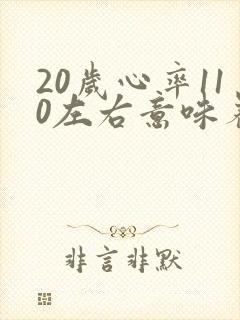 20歲心率11
0左右意味着
非言非默